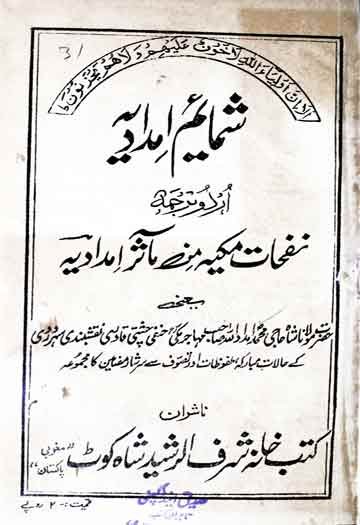 31
الا ان اولیاء اللہ لا خوف علیہم ولا ہم یحزنون ط
شمایٔم امدادیہ
اُردو ترجمہ
نفحات مکیہ من مآثر امدادیہ
یعنی
حضرت مولانا شاہ حاجی محمد امداد اللہ صاحب مہاجر مکی حنفی چشتی قادری نقشبندی سہروردی
کے حالات مبارکہ ملفوظات اور تصوف سے سرشار مضامین کا مجموعہ
ناشران
کتب خانہ شرف الرشید شاہ کوٹ "مغربی پاکستان"
قیمت:- ۲ روپے